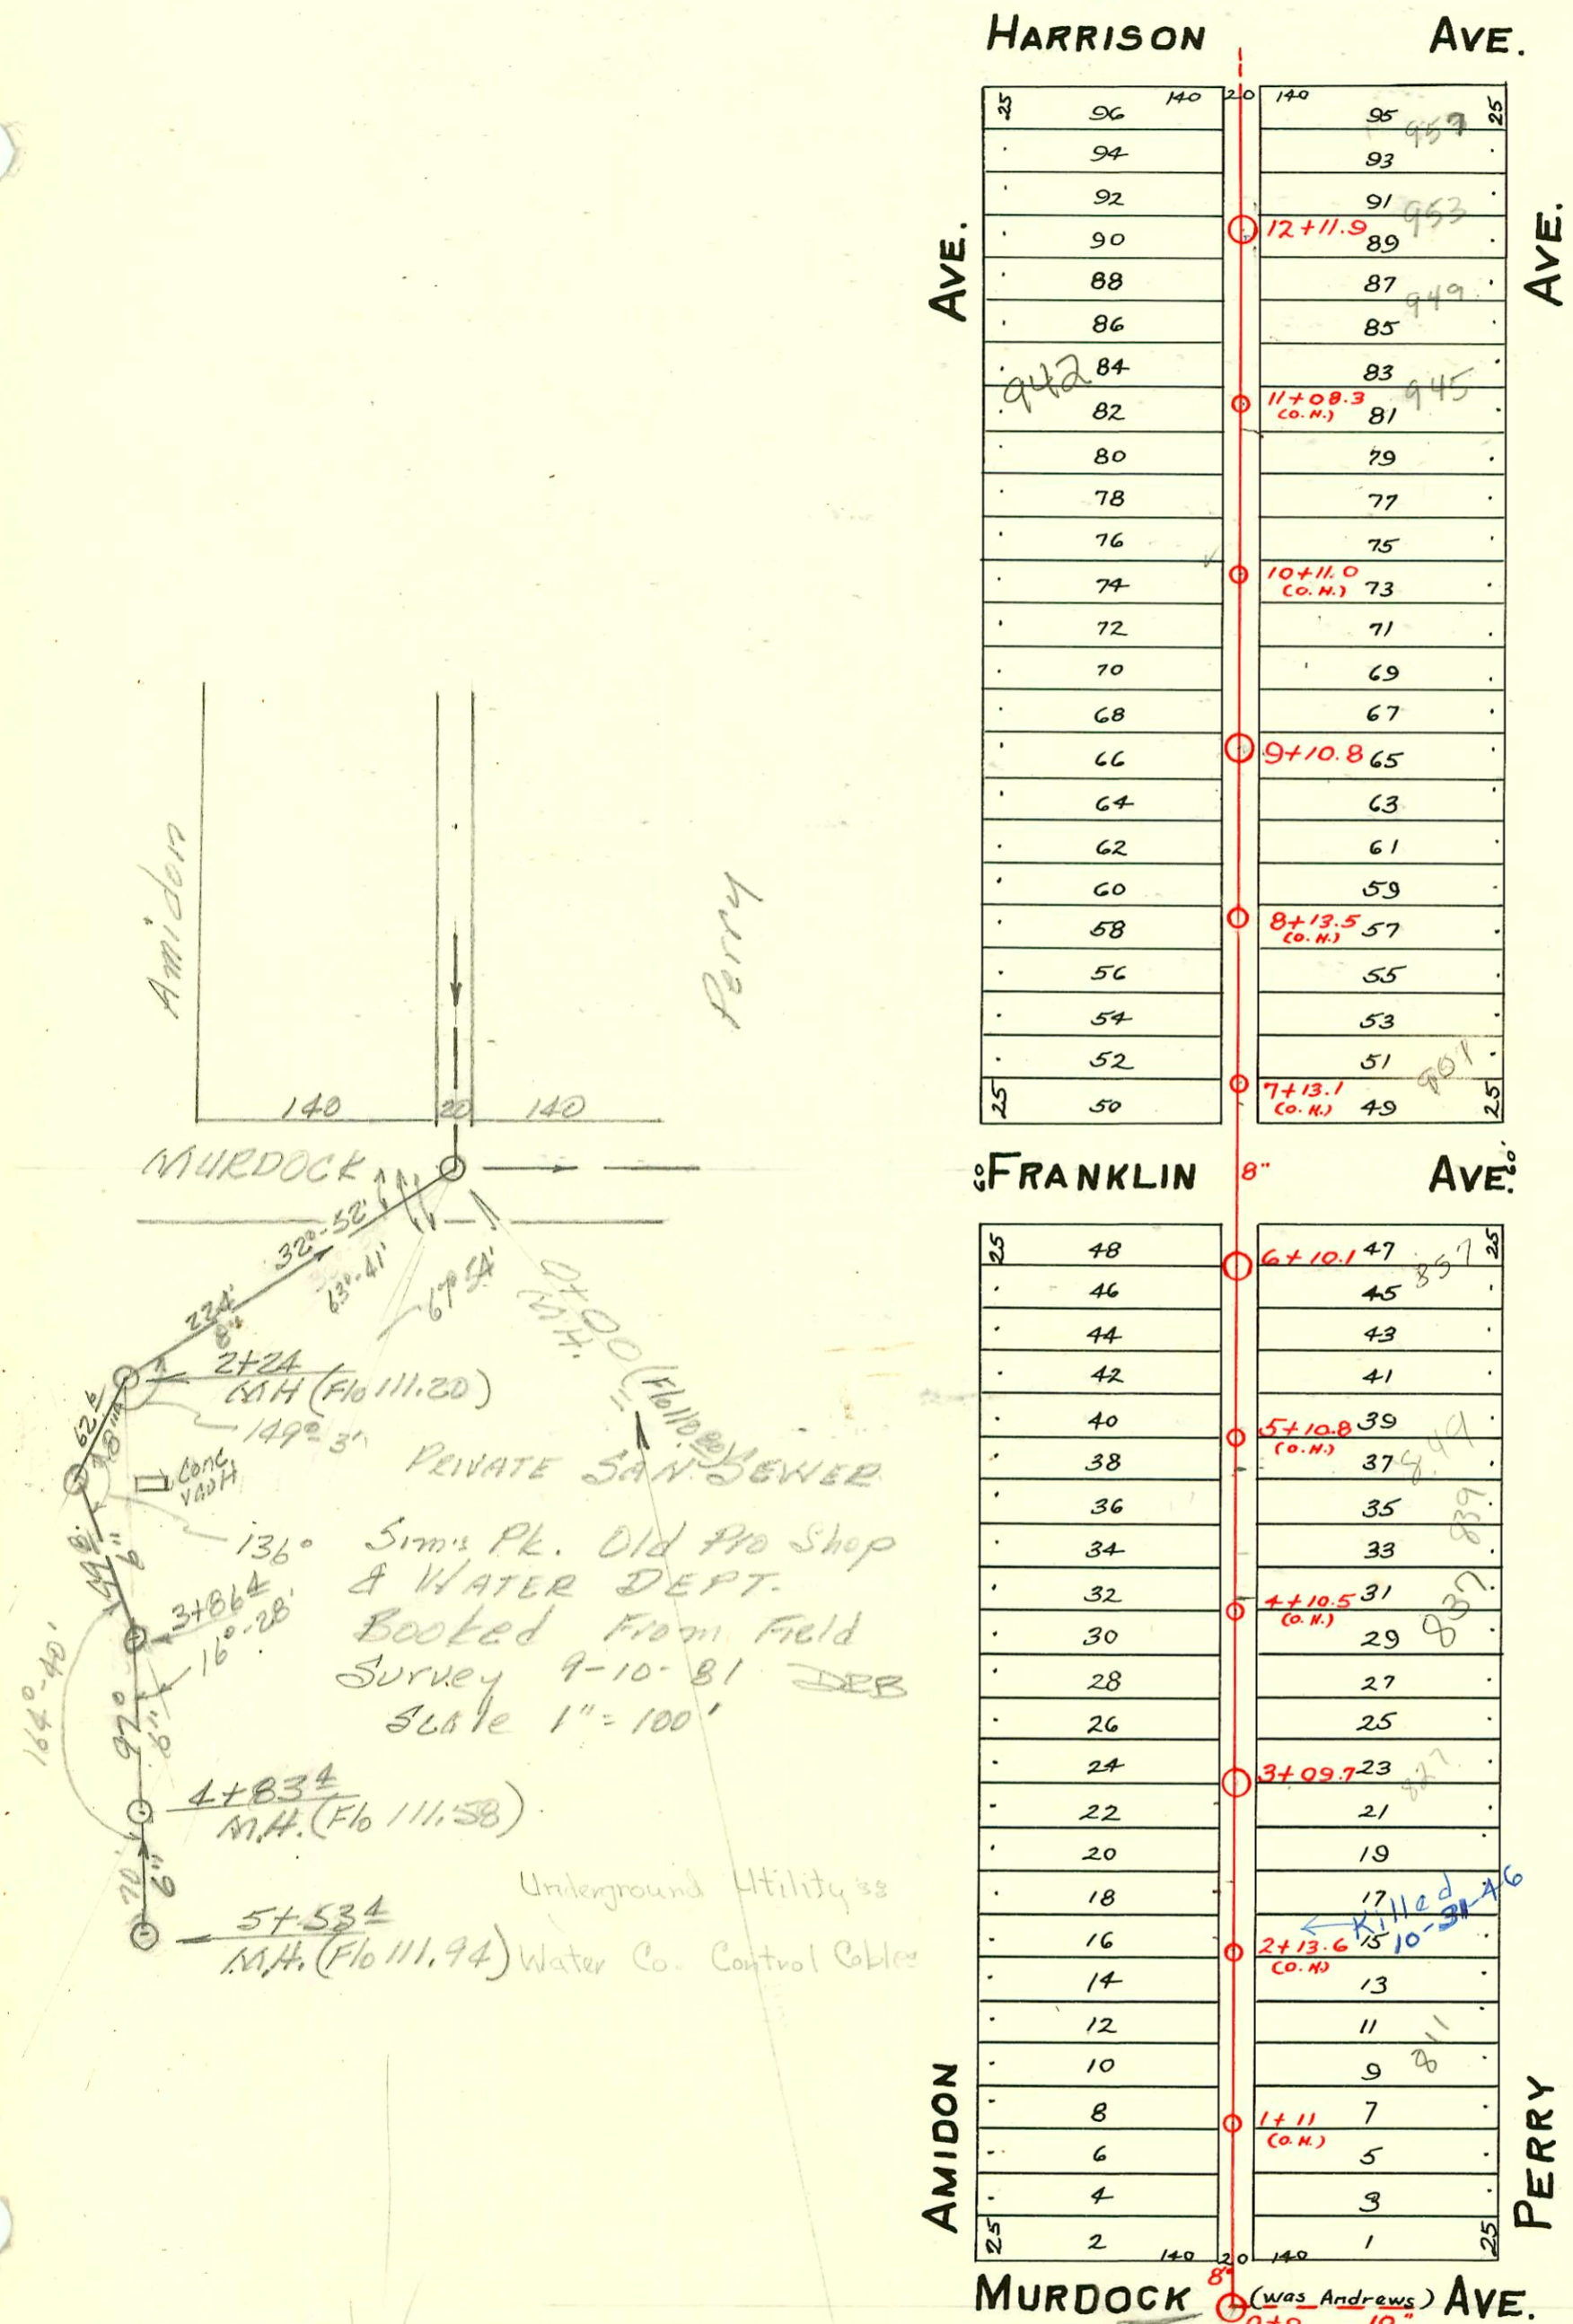 HARRISON AVE.
140 20 140
25 96 95 25
957
94 93
92 91
953
12+11.9
90 89
AVE. AVE.
88 87
949
86 85
84 83
942 945
11+08.3
(O.H.)
82 81
80 79
78 77
76 75
10+11.0
(O.H.)
74 73
72 71
70 69
68 67
9+10.8
66 65
64 63
62 61
60 59
8+13.5
(O.H.)
58 57
56 55
54 53
52 51
7+13.1
(O.H.)
25 50 49 25
60 FRANKLIN 8" AVE. 60'
25 48 47 25
6+10.1
857
46 45
44 43
42 41
40 39
5+10.8
(O.H.)
849
38 37
36 35
839
34 33
32 31
4+10.5
(O.H.)
837
30 29
28 27
26 25
24 23
3+09.7
827
22 21
20 19
18 17
Killed
10-31-46
16 15
2+13.6
(O.H.)
14 13
12 11
811
10 9
8 7
1+11
(O.H.)
6 5
4 3
25 2 1 25
140 20 140
AMIDON PERRY
8"
MURDOCK (was Andrews) AVE.
Amidon
Perry
140 20 140
MURDOCK
32°-52'
63°-41'
67° 54'
224'
8"
0+00
M.H.
2+24
M.H (Flo 111.20)
149°-3'
8"
Conc
PRIVATE SAN. SEWER
136°
6"
Sim's Pk. Old Pro Shop
& WATER DEPT.
Booked From Field
Survey 9-10-81 DRB
Scale 1" = 100'
3+86 4
16°-28'
164°-40'
97°
6"
4+83 4
M.H. (Flo 111.58)
70'
6"
5+53 4
M.H. (Flo 111.94)
Underground Utility
Water Co. Control Cables